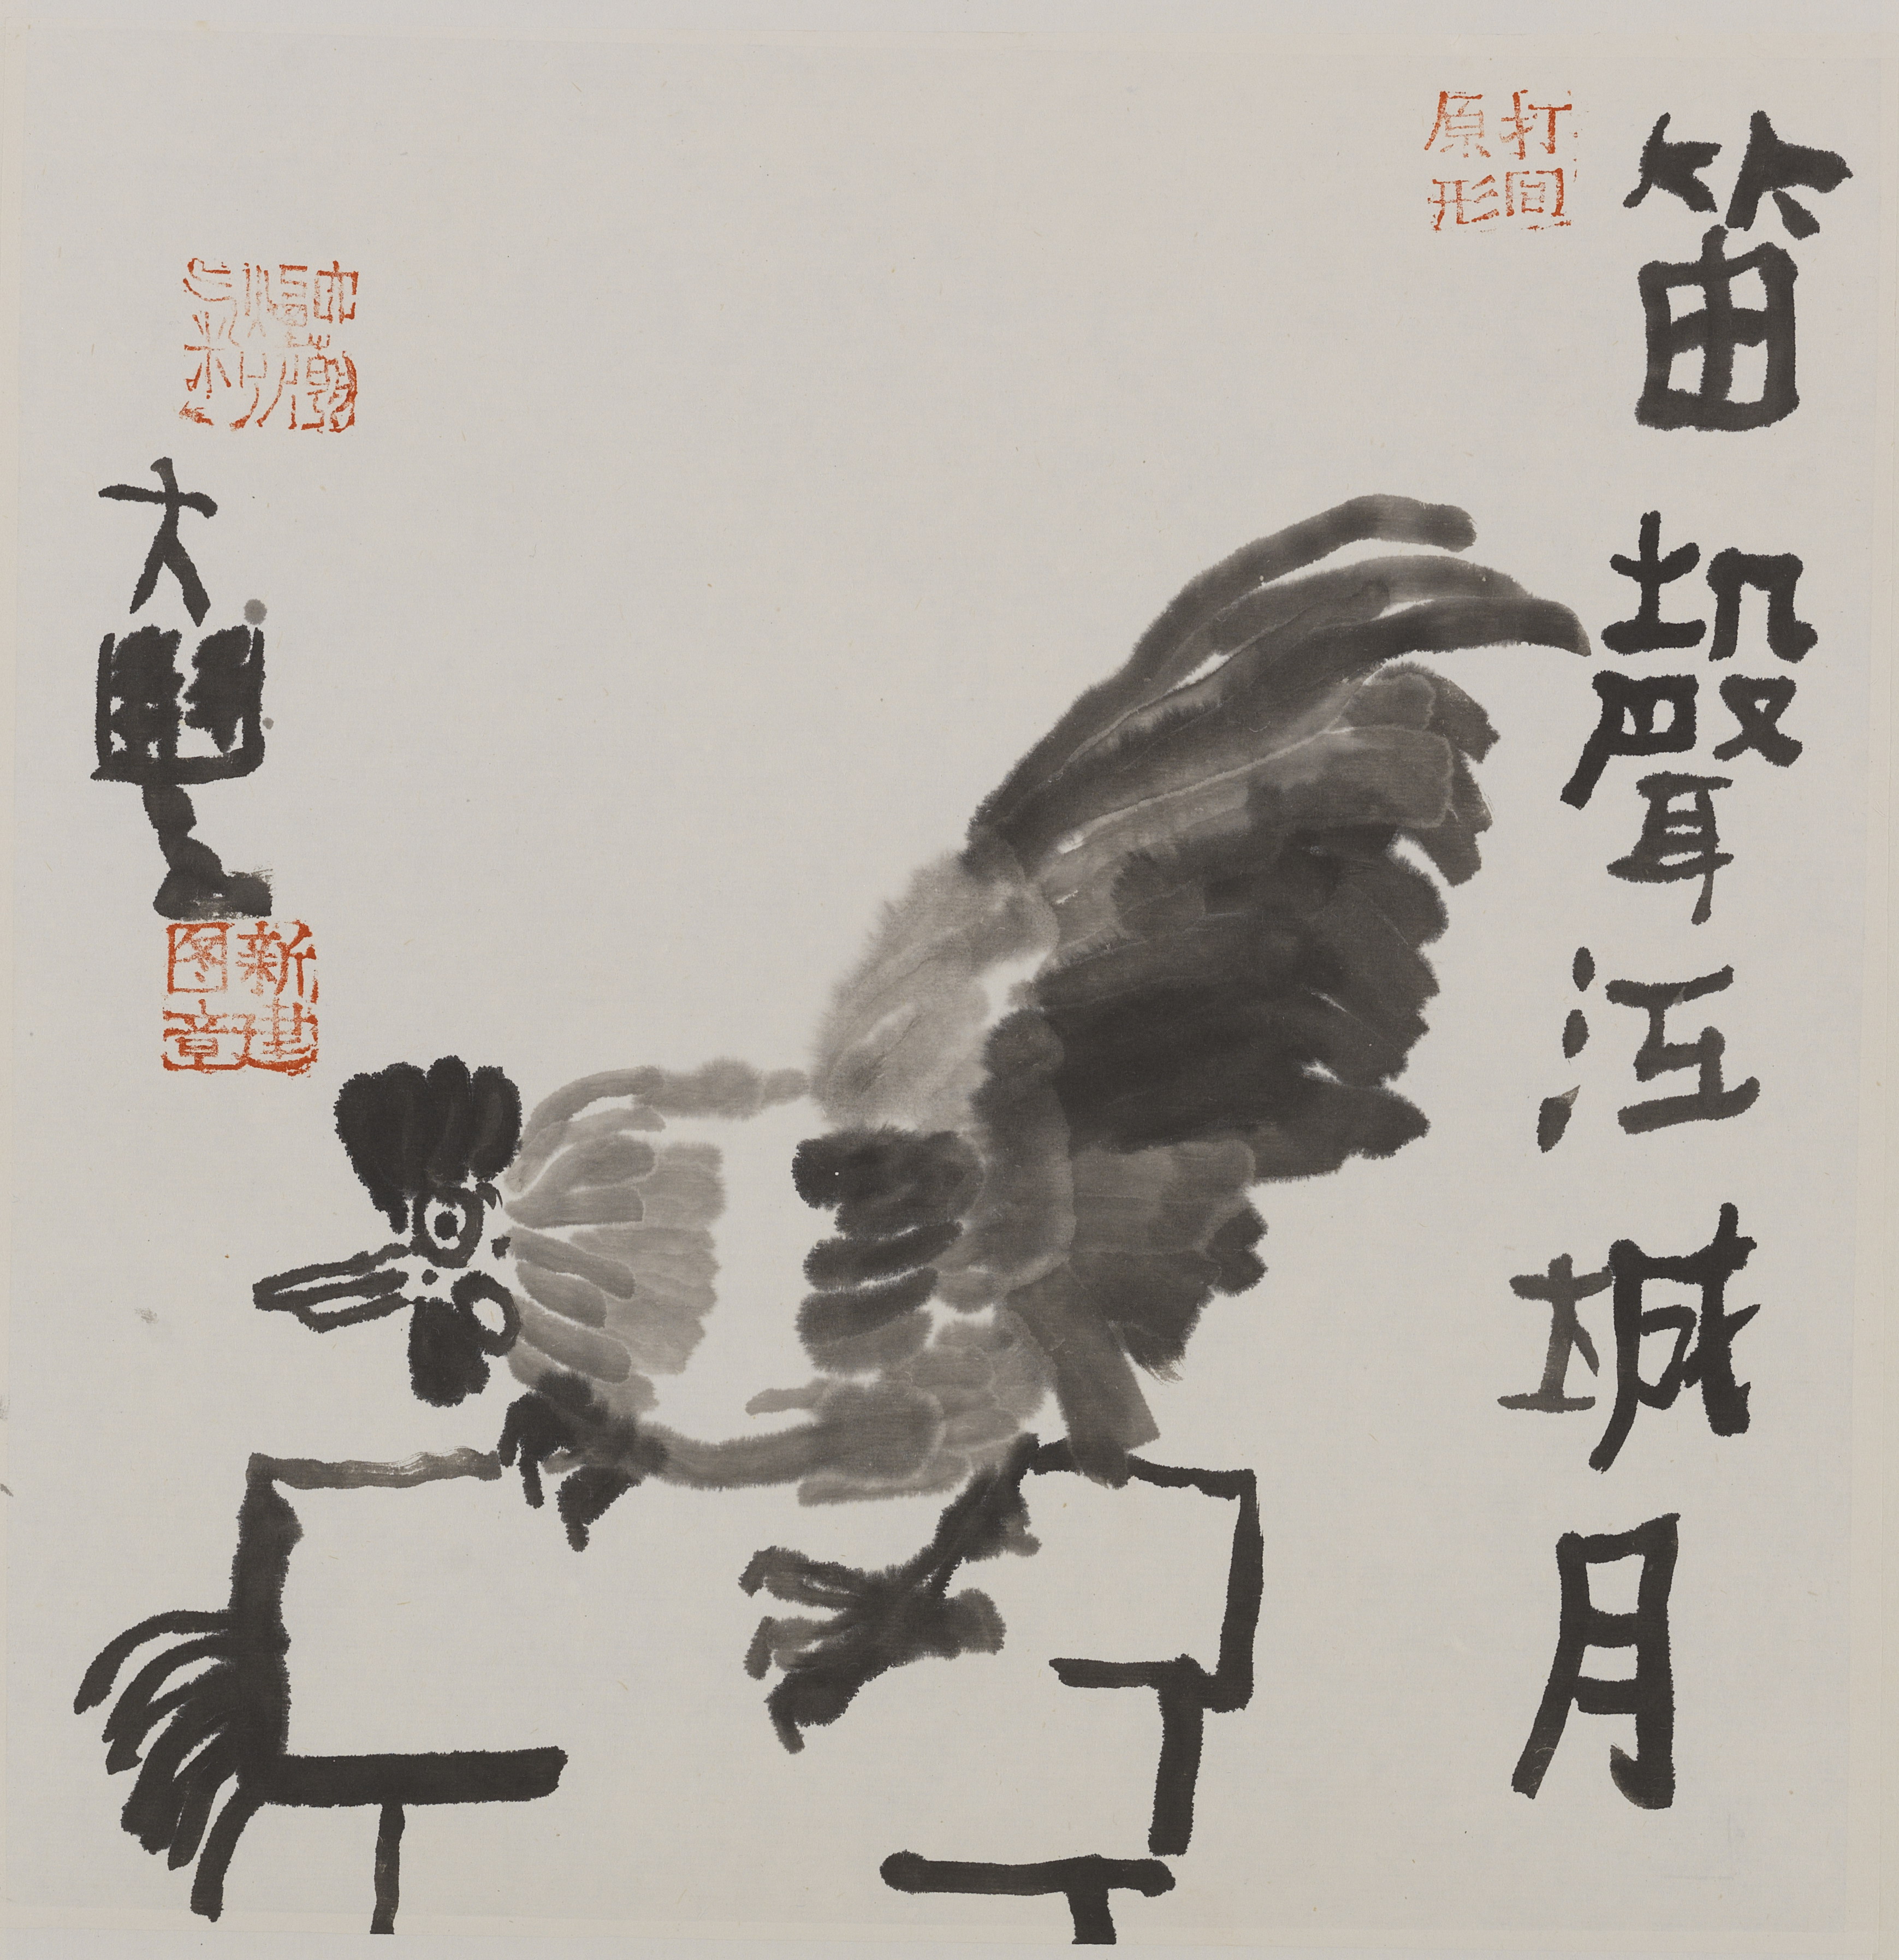 笛聲江城月
打回原形
大
新建图章